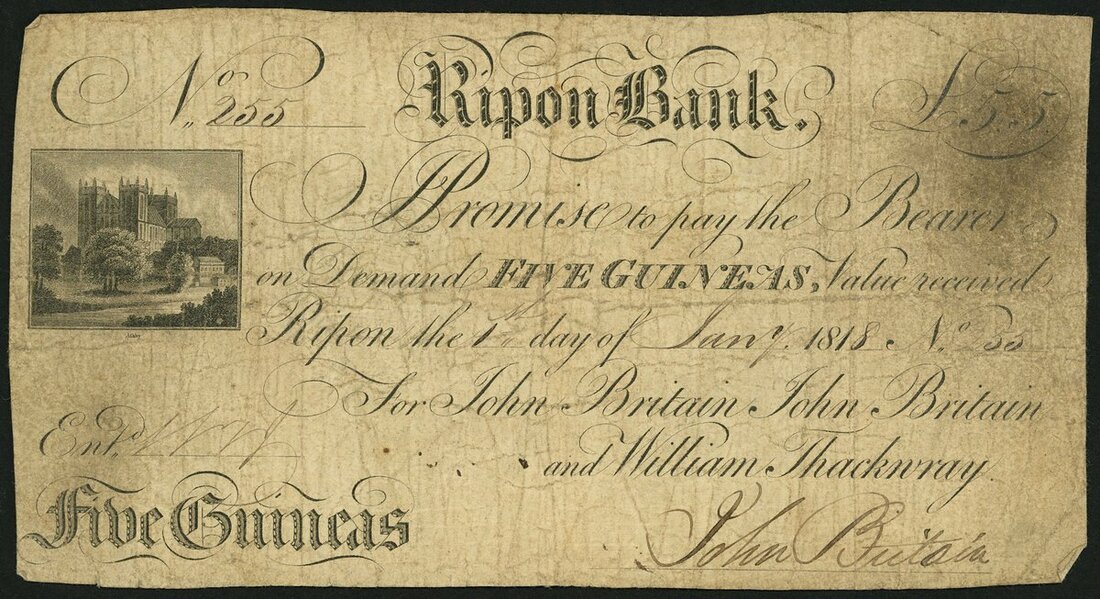 No. 255
Ripon Bank.
£5.5.
I Promise to pay the Bearer
on Demand FIVE GUINEAS, Value received
Ripon the 1st day of Jany. 1818 No. 255
For John Britain John Britain
and William Thackwray.
Entd.
Five Guineas
John Britain